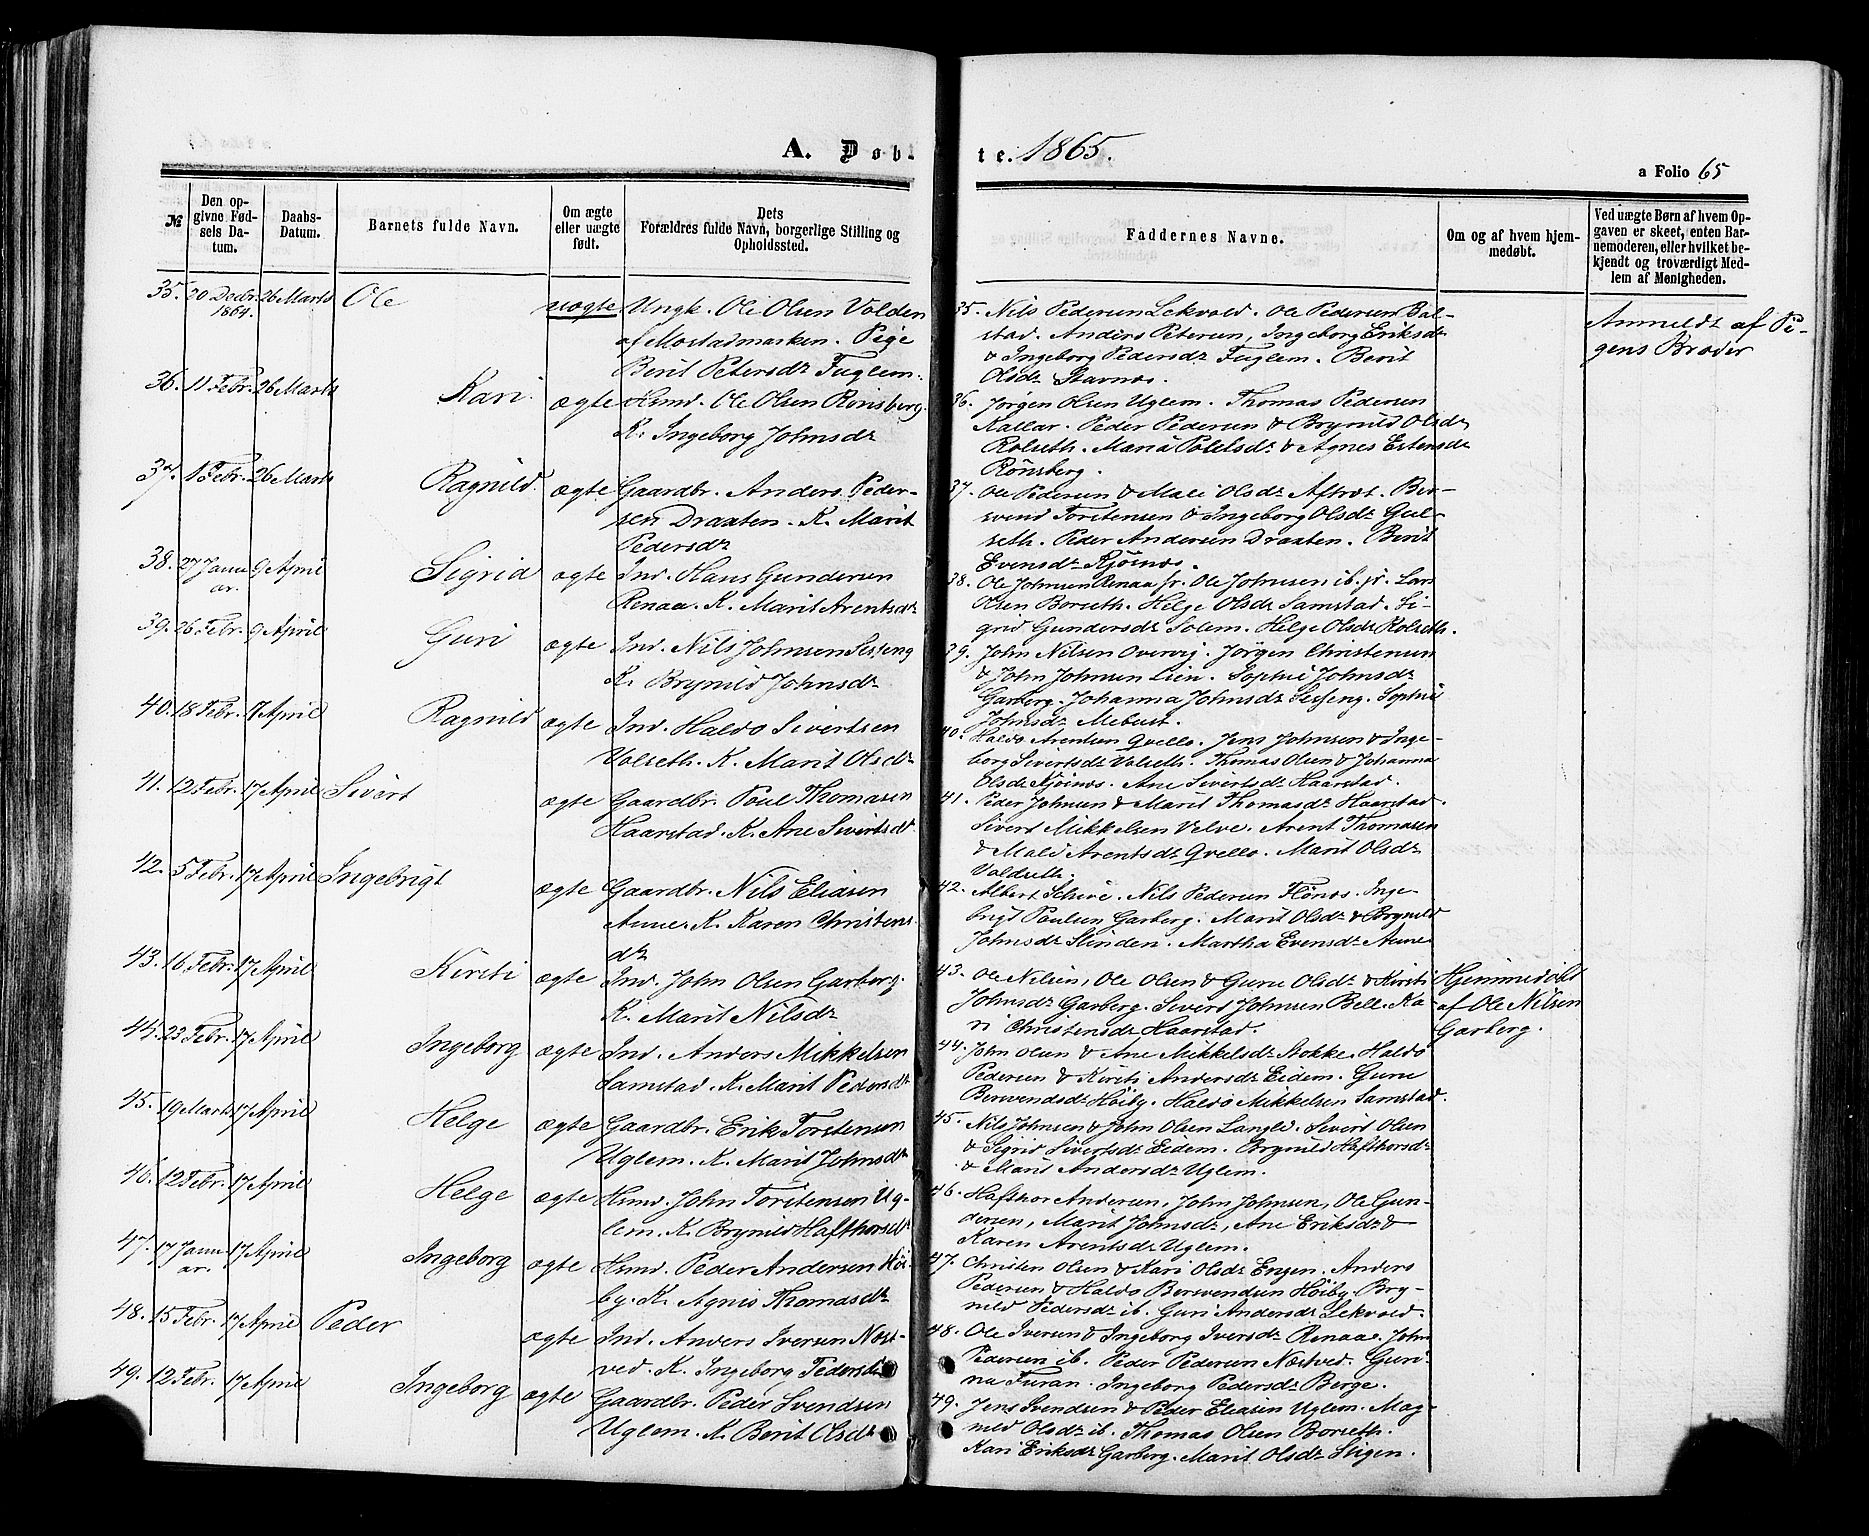 A. Døb-
te. 1865.
a Folio 65
№
Den op-
givne Fød-
sels Da-
tum.
Daabs-
Datum.
Barnets fulde Navn.
Om ægte
eller uægte
født.
Dets
Forældres fulde Navn, borgerlige Stilling og
Opholdssted.
Faddernes Navne.
Om og af hvem hjem-
medøbt.
Ved uægte Børn af hvem Op-
gaven er skeet, enten Bar-
nemoderen, eller hvilket be-
kjendt og troværdigt Med-
lem af Menigheden.
35. 20 Decbr. 1864. 26 Marts Ole uægte Ungk. Ole Olsen Volden
af Mostadmarken. Pige
Berit Petersdr Fuglem.
35. Nils Pedersen Lekvold. Ole Pedersen Bal-
stad. Anders Petersen, Ingeborg Eriksdr
& Ingeborg Pedersdr Fuglem. Berit
Olsdr Stavnos.
Anmeldt af Pi-
gens Broder
36. 11 Febr. 26 Marts Kari ægte Husmd. Ole Olsen Rønsberg.
K. Ingeborg Johnsdr
36. Jørgen Olsen Uglem. Thomas Pedersen
Kallar. Peder Pedersen & Brynild Olsdr
Rolseth. Maria Polelsdr & Agnes Estensdr
Rønsberg.
37. 1 Febr. 26 Marts Ragnild. ægte Gaardbr. Anders Peder-
sen Draaten. K. Marit
Pedersdr
37. Ole Pedersen & Mali Olsdr Aftret. Ber-
svend Torstensen & Ingeborg Olsdr Gul-
seth. Peder Andersen Draaten. Berit
Evensdr Kjøinos.
38. 27 Janu-
ar. 9 April Sigrid ægte Ind. Hans Gundersen
Renaa. K. Marit Arentsdr
38. Ole Johnsen Renaa sr. Ole Johnsen ib. jr. Lars
Olsen Borseth. Helge Olsdr Samstad. Si-
grid Gundersdr Solem. Helge Olsdr Rolseth.
39. 26 Febr. 9 April Guri ægte Ind. Nils Johnsen Sesseng
K. Brynild Johnsdr
39. John Nilsen Overvig. Jørgen Christensen
& John Johnsen Lien. Sophie Johnsdr
Garberg. Johanna Johnsdr Sesseng. Sophie
Johnsdr Mebust.
40. 18 Febr. 17 April Ragnild ægte Ind. Haldo Sivertsen
Volseth. K. Marit Olsdr
40. Haldo Arentsen Qvello. Jens Johnsen & Inge-
borg Sivertsdr Volseth. Thomas Olsen & Johanna
Olsdr Kjøinos. Ane Sivertsdr Haarstad.
41. 12 Febr. 17 April Sivert ægte Gaardbr. Poul Thomasen
Haarstad. K. Ane Sivertsdr
41. Peder Johnsen & Marit Thomasdr Haarstad.
Sivert Mikkelsen Velve. Arent Thomasen
& Mali Arentsdr Qvello. Marit Olsdr
Valdseth.
42. 5 Febr. 17 April Ingebrigt ægte Gaardbr. Nils Eliasen
Aune. K. Karen Christens-
dr
42. Albert Schive. Nils Pedersen Flønos. Inge-
brigt Paulsen Garberg. Marit Olsdr & Brynild
Johnsdr Slinden. Martha Evensdr Aune
43. 16 Febr. 17 April Kirsti ægte Ind. John Olsen Garberg.
K. Marit Nilsdr
43. Ole Nilsen, Ole Olsen & Gurue Olsdr & Kirsti
Johnsdr Garberg. Sivert Johnsen Bell. Ka-
ri Christensdr Haarstad.
Hjemmedøbt
af Ole Nilsen
Garberg.
44. 23 Febr. 17 April Ingeborg ægte Ind. Anders Mikkelsen
Samstad. K. Marit Pedersdr
44. John Olsen & Ane Mikkelsdr Stokke. Haldo
Pedersen & Kirsti Andersdr Eidem. Gurue
Bersvendsdr Høiby. Haldo Mikkelsen Samstad.
45. 19 Marts 17 April Helge ægte Gaardbr. Erik Torstensen
Uglem. K. Marit Johnsdr
45. Nils Johnsen & John Olsen Langld. Sivert Olsen
& Sigrid Sivertsdr Eidem. Brynild Hafthorsdr
& Marit Andersdr Uglem.
46. 12 Febr. 17 April Helge ægte Husmd. John Torstensen Ug-
lem. K. Brynild Hafthorsdr
46. Hafthor Andersen, John Johnsen, Ole Gun-
dersen, Marit Johnsdr, Ane Eriksdr &
Karen Arentsdr Uglem.
47. 17 Janu-
ar. 17 April Ingeborg ægte Husmd. Peder Andersen Høi-
by. K. Agnis Thomasdr
47. Christen Olsen & Kari Olsdr Engen. Anders
Pedersen & Haldo Bersvendsen Høiby. Bry-
nild Pedersdr ib. Guri Andersdr Lekvold.
48. 15 Febr. 17 April Peder ægte Ind. Anders Iversen Næst-
ved. K. Ingeborg Pedersdr
48. Ole Iversen & Ingeborg Iversdr Renaa. John
Pedersen ib. Peder Pedersen Næstved. Guri-
na Furan. Ingeborg Pedersdr Berge.
49. 12 Febr. 17 April Ingeborg ægte Gaardbr. Peder Svendsen
Uglem. K. Berit Olsdr
49. Jens Svendsen & Peder Eliasen Uglem. Mag-
nild Olsdr ib. Thomas Olsen Borseth.
Kari Eriksdr Garberg. Marit Olsdr Stigen.